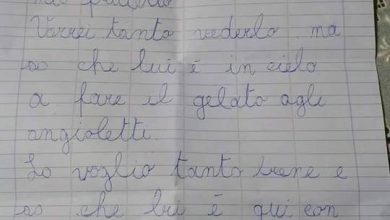 Vorrei tanto vederlo ma
so che lui è in cielo
a fare il gelato agli
angioletti.
Lo voglio tanto bene e
so che lui è qui con